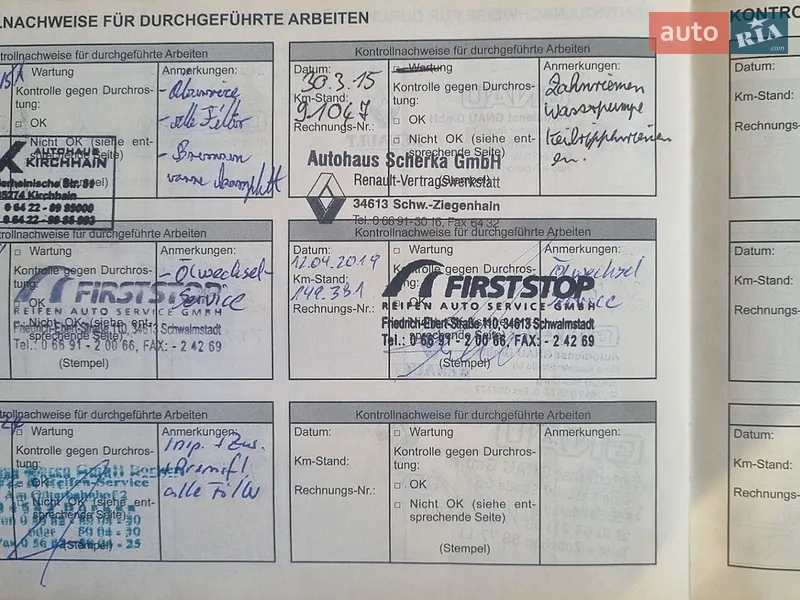 LNACHWEISE FÜR DURCHGEFÜHRTE ARBEITEN
KONTRO
auto RIA .com
trollnachweise für durchgeführte Arbeiten
Wartung
Kontrolle gegen Durchros-
tung:
OK
Nicht OK (siehe ent-
sprechende Seite)
Anmerkungen:
- alle Filter
- Bremsen
AUTOHAUS
KIRCHHAIN
35274 Kirchhain
Kontrollnachweise für durchgeführte Arbeiten
Datum:
30.3.15
Km-Stand:
91047
Rechnungs-Nr.:
Wartung
Kontrolle gegen Durchros-
tung:
OK
Nicht OK (siehe ent-
sprechende Seite)
Anmerkungen:
Zahnriemen
Wasserpumpe
Autohaus Scherka GmbH
Renault-Vertragswerkstatt
34613 Schw.-Ziegenhain
Tel. 0 66 91-30 16, Fax 64 32
Datum:
Km-Stand:
Rechnungs-
trollnachweise für durchgeführte Arbeiten
Wartung
Kontrolle gegen Durchros-
tung:
OK
Nicht OK (siehe ent-
sprechende Seite)
(Stempel)
Anmerkungen:
- Ölwechsel-
service
FIRSTSTOP
REIFEN AUTO SERVICE GMBH
Friedrich-Ebert-Straße 110, 34613 Schwalmstadt
Tel.: 0 66 91 - 2 00 66, FAX: - 2 42 69
Kontrollnachweise für durchgeführte Arbeiten
Datum:
12.04.2019
Km-Stand:
149.351
Rechnungs-Nr.:
Wartung
Kontrolle gegen Durchros-
tung:
OK
Nicht OK (siehe ent-
sprechende Seite)
(Stempel)
Anmerkungen:
Ölwechsel
service
FIRSTSTOP
REIFEN AUTO SERVICE GMBH
Friedrich-Ebert-Straße 110, 34613 Schwalmstadt
Tel.: 0 66 91 - 2 00 66, FAX: - 2 42 69
Datum:
Km-Stand:
Rechnungs-
trollnachweise für durchgeführte Arbeiten
Wartung
Kontrolle gegen Durchros-
tung:
OK
Nicht OK (siehe ent-
sprechende Seite)
(Stempel)
Anmerkungen:
Insp. + Zus.
+ Bremsfl
alle Filter
Am Güterbahnhof 2
Kontrollnachweise für durchgeführte Arbeiten
Datum:
Km-Stand:
Rechnungs-Nr.:
Wartung
Kontrolle gegen Durchros-
tung:
OK
Nicht OK (siehe ent-
sprechende Seite)
(Stempel)
Anmerkungen:
Datum:
Km-Stand:
Rechnungs-